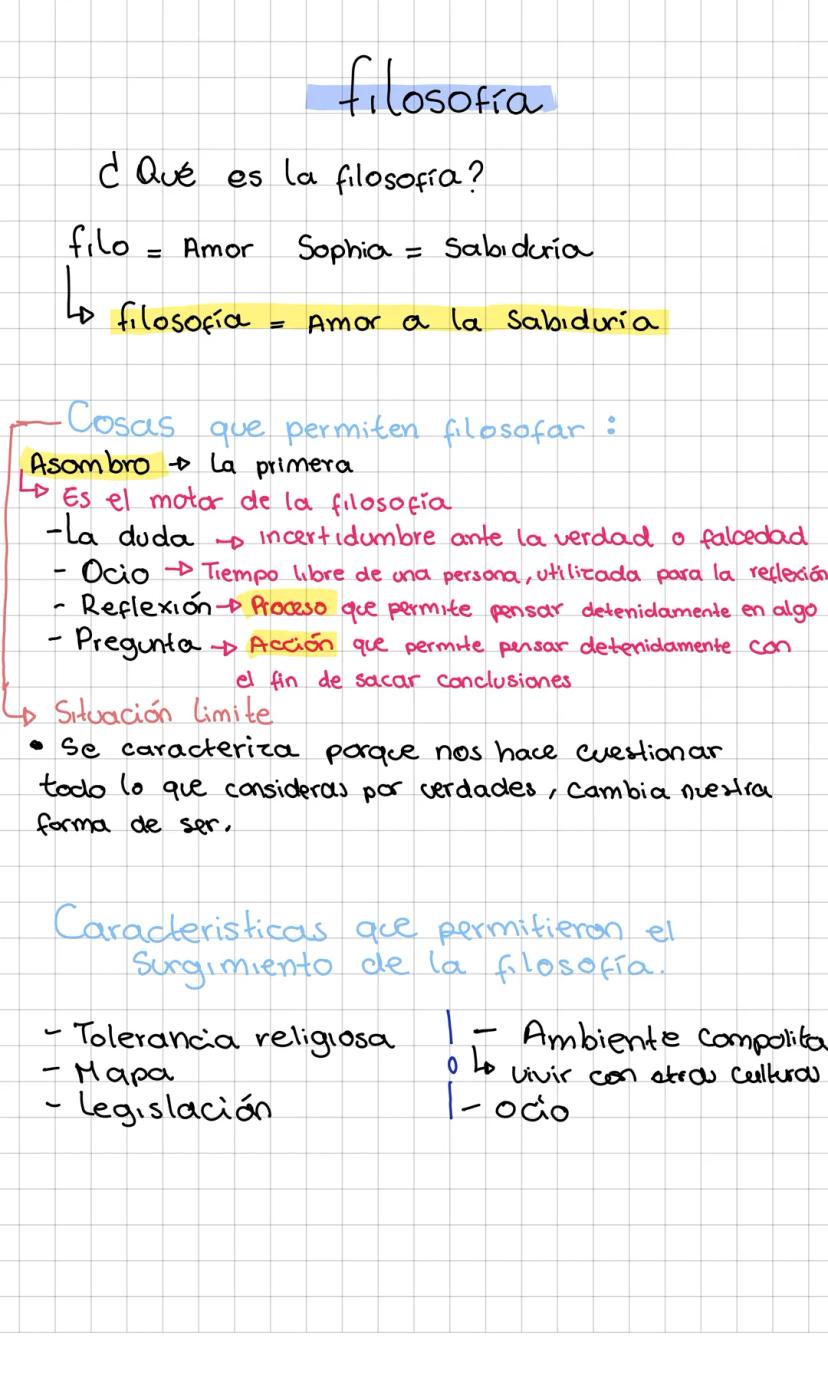 filosofía
¿Qué es la filosofía?
filo = Amor Sophia = Sabiduría
↳ filosofía = Amor a la Sabiduría
Cosas que permiten filosofar:
Asombro → la primera
↳ Es el motor de la filosofía
-La duda → incertidumbre ante la verdad o falcedad
- Ocio → Tiempo libre de una persona, utilizada para la reflexión
- Reflexión → Proceso que permite pensar detenidamente en algo
- Pregunta → Acción que permite pensar detenidamente con
el fin de sacar conclusiones
↳ Situación limite
• Se caracteriza porque nos hace cuestionar
todo lo que consideras por verdades, cambia nuestra
forma de ser.
Caracteristicas que permitieron el
surgimiento de la filosofía.
- Tolerancia religiosa
- Mapa
- legislación
- Ambiente compolita
↳ vivir con otras culturas
- ocio